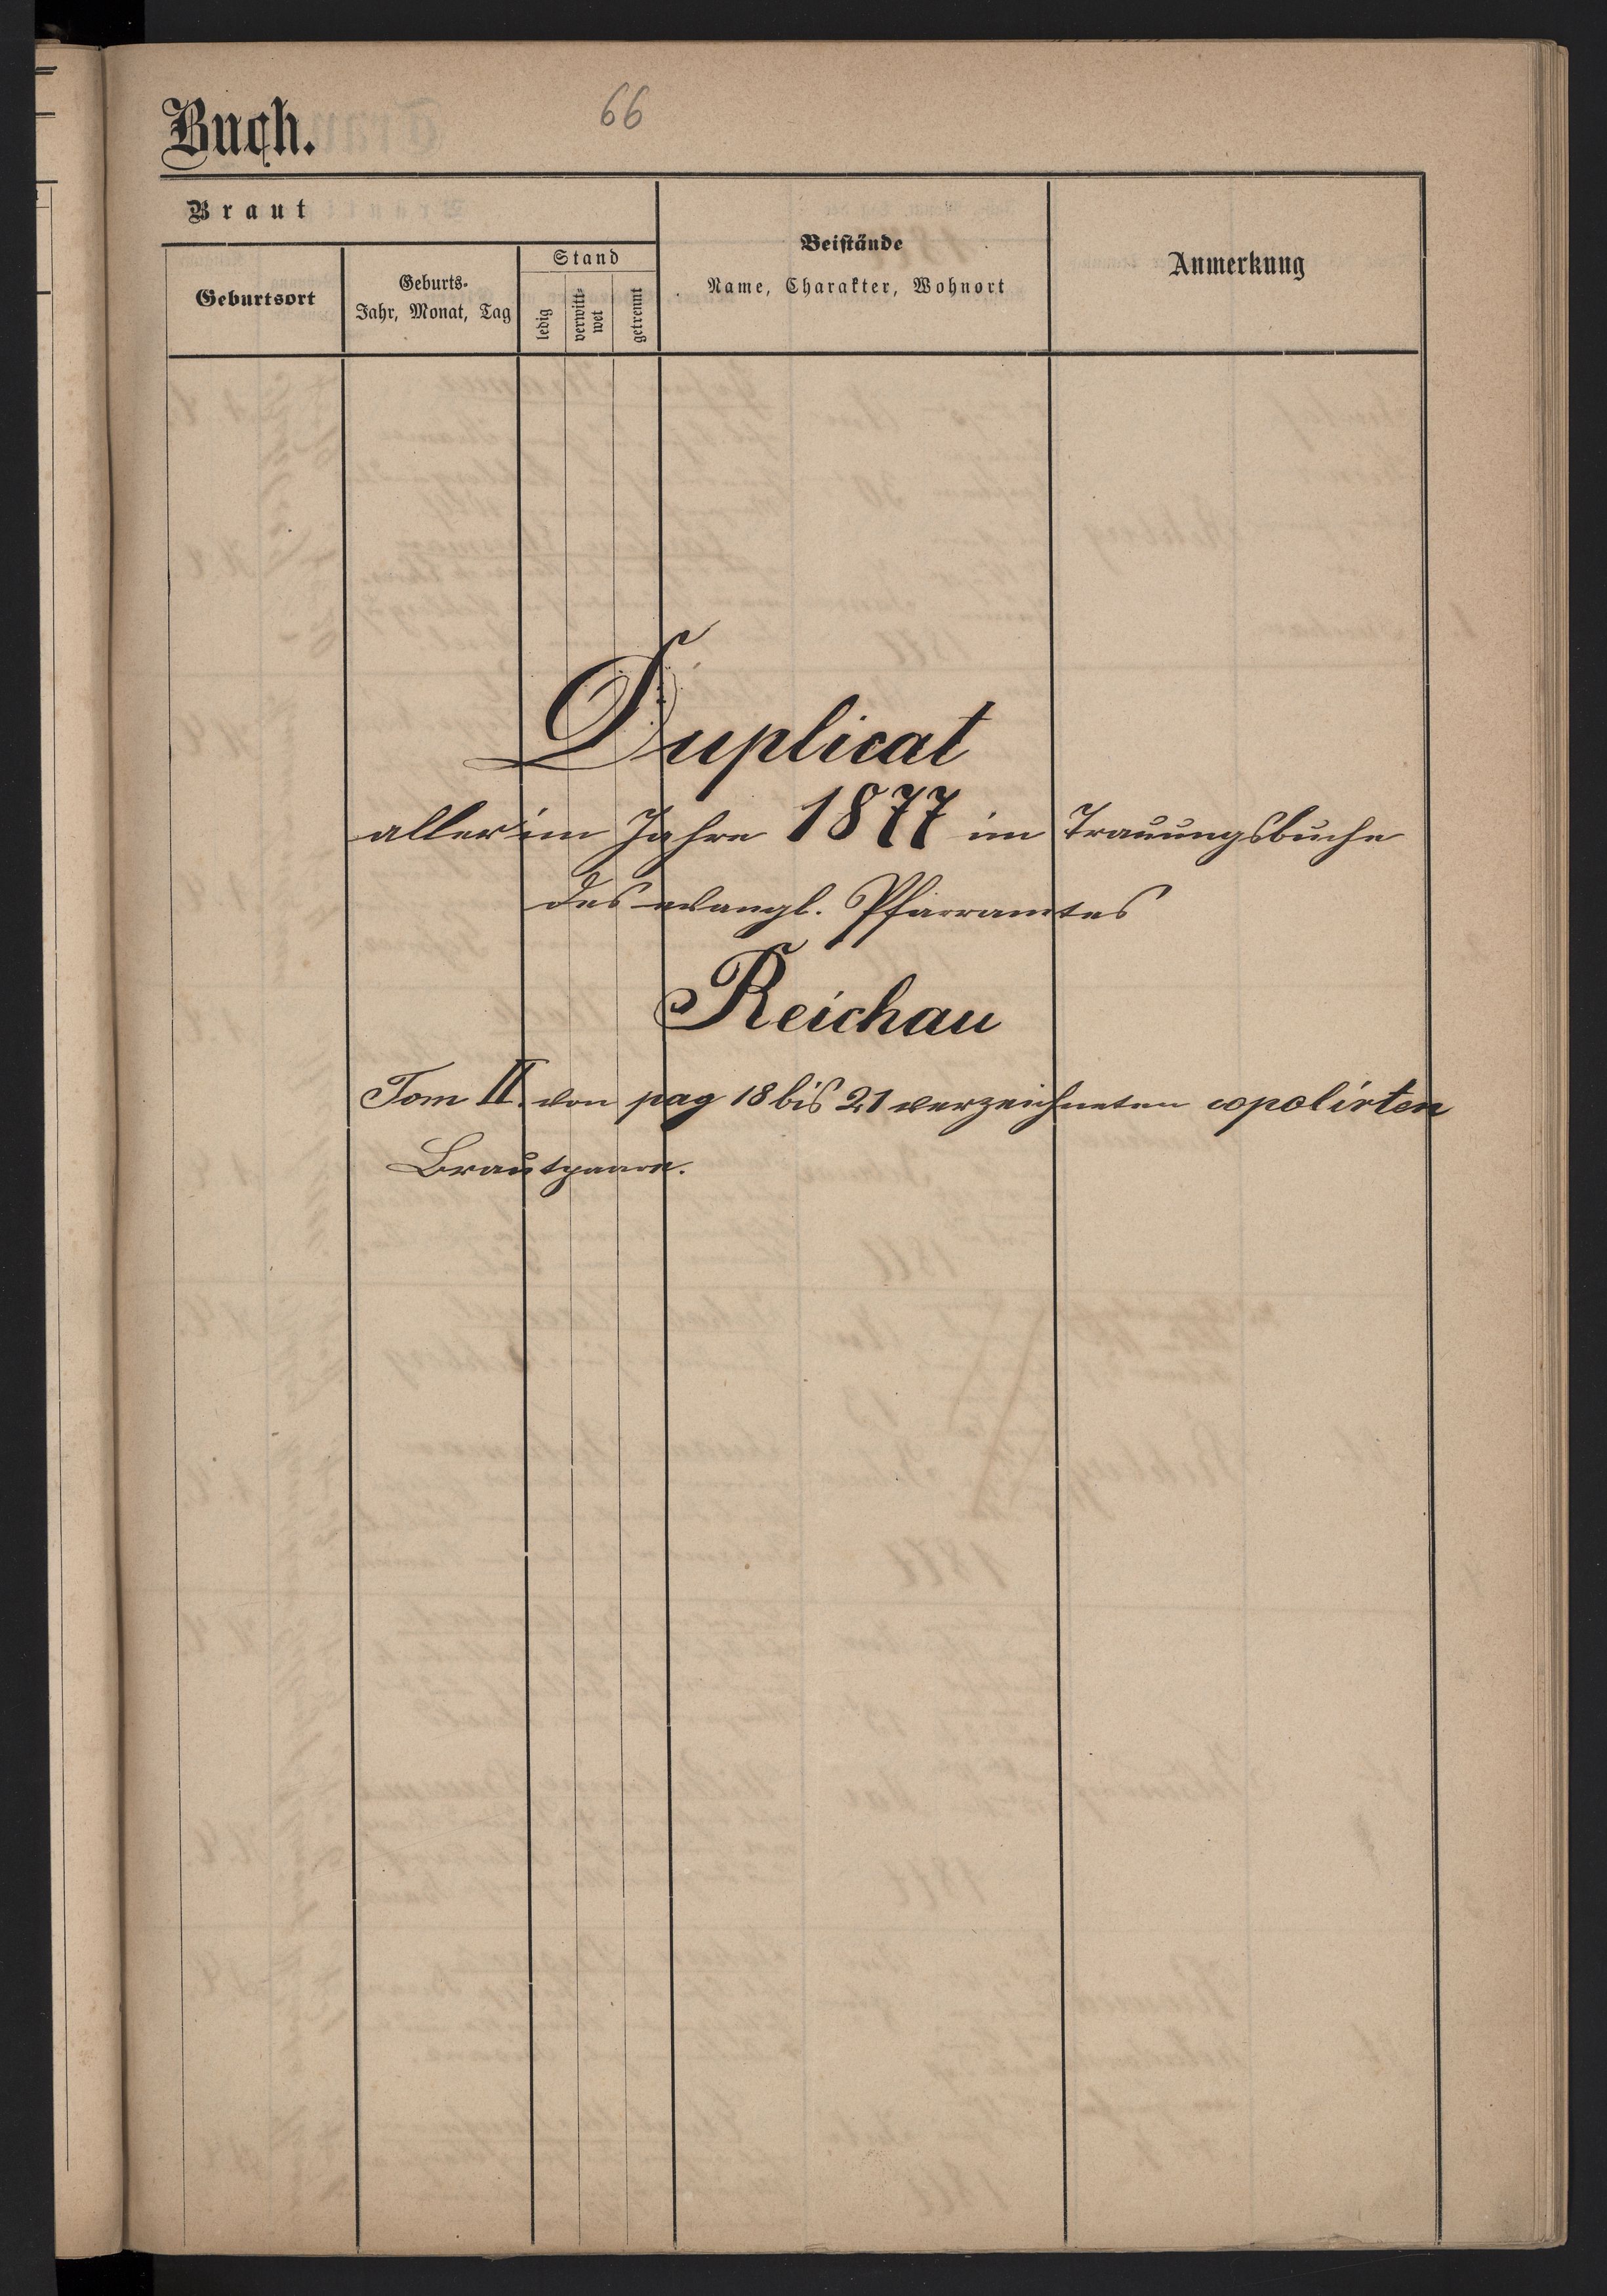 Buch.
66
Braut
Geburtsort
Geburts-
Jahr, Monat, Tag
Stand
ledig
verwitt-
wet
getrennt
Beistände
Name, Charakter, Wohnort
Anmerkung
Duplicat
aller im Jahre 1877 im Trauungsbuche
des evangl. Pfarramtes
Reichau
Tom II. von pag 18 bis 21 verzeichneten copolirten
Brautpaare.